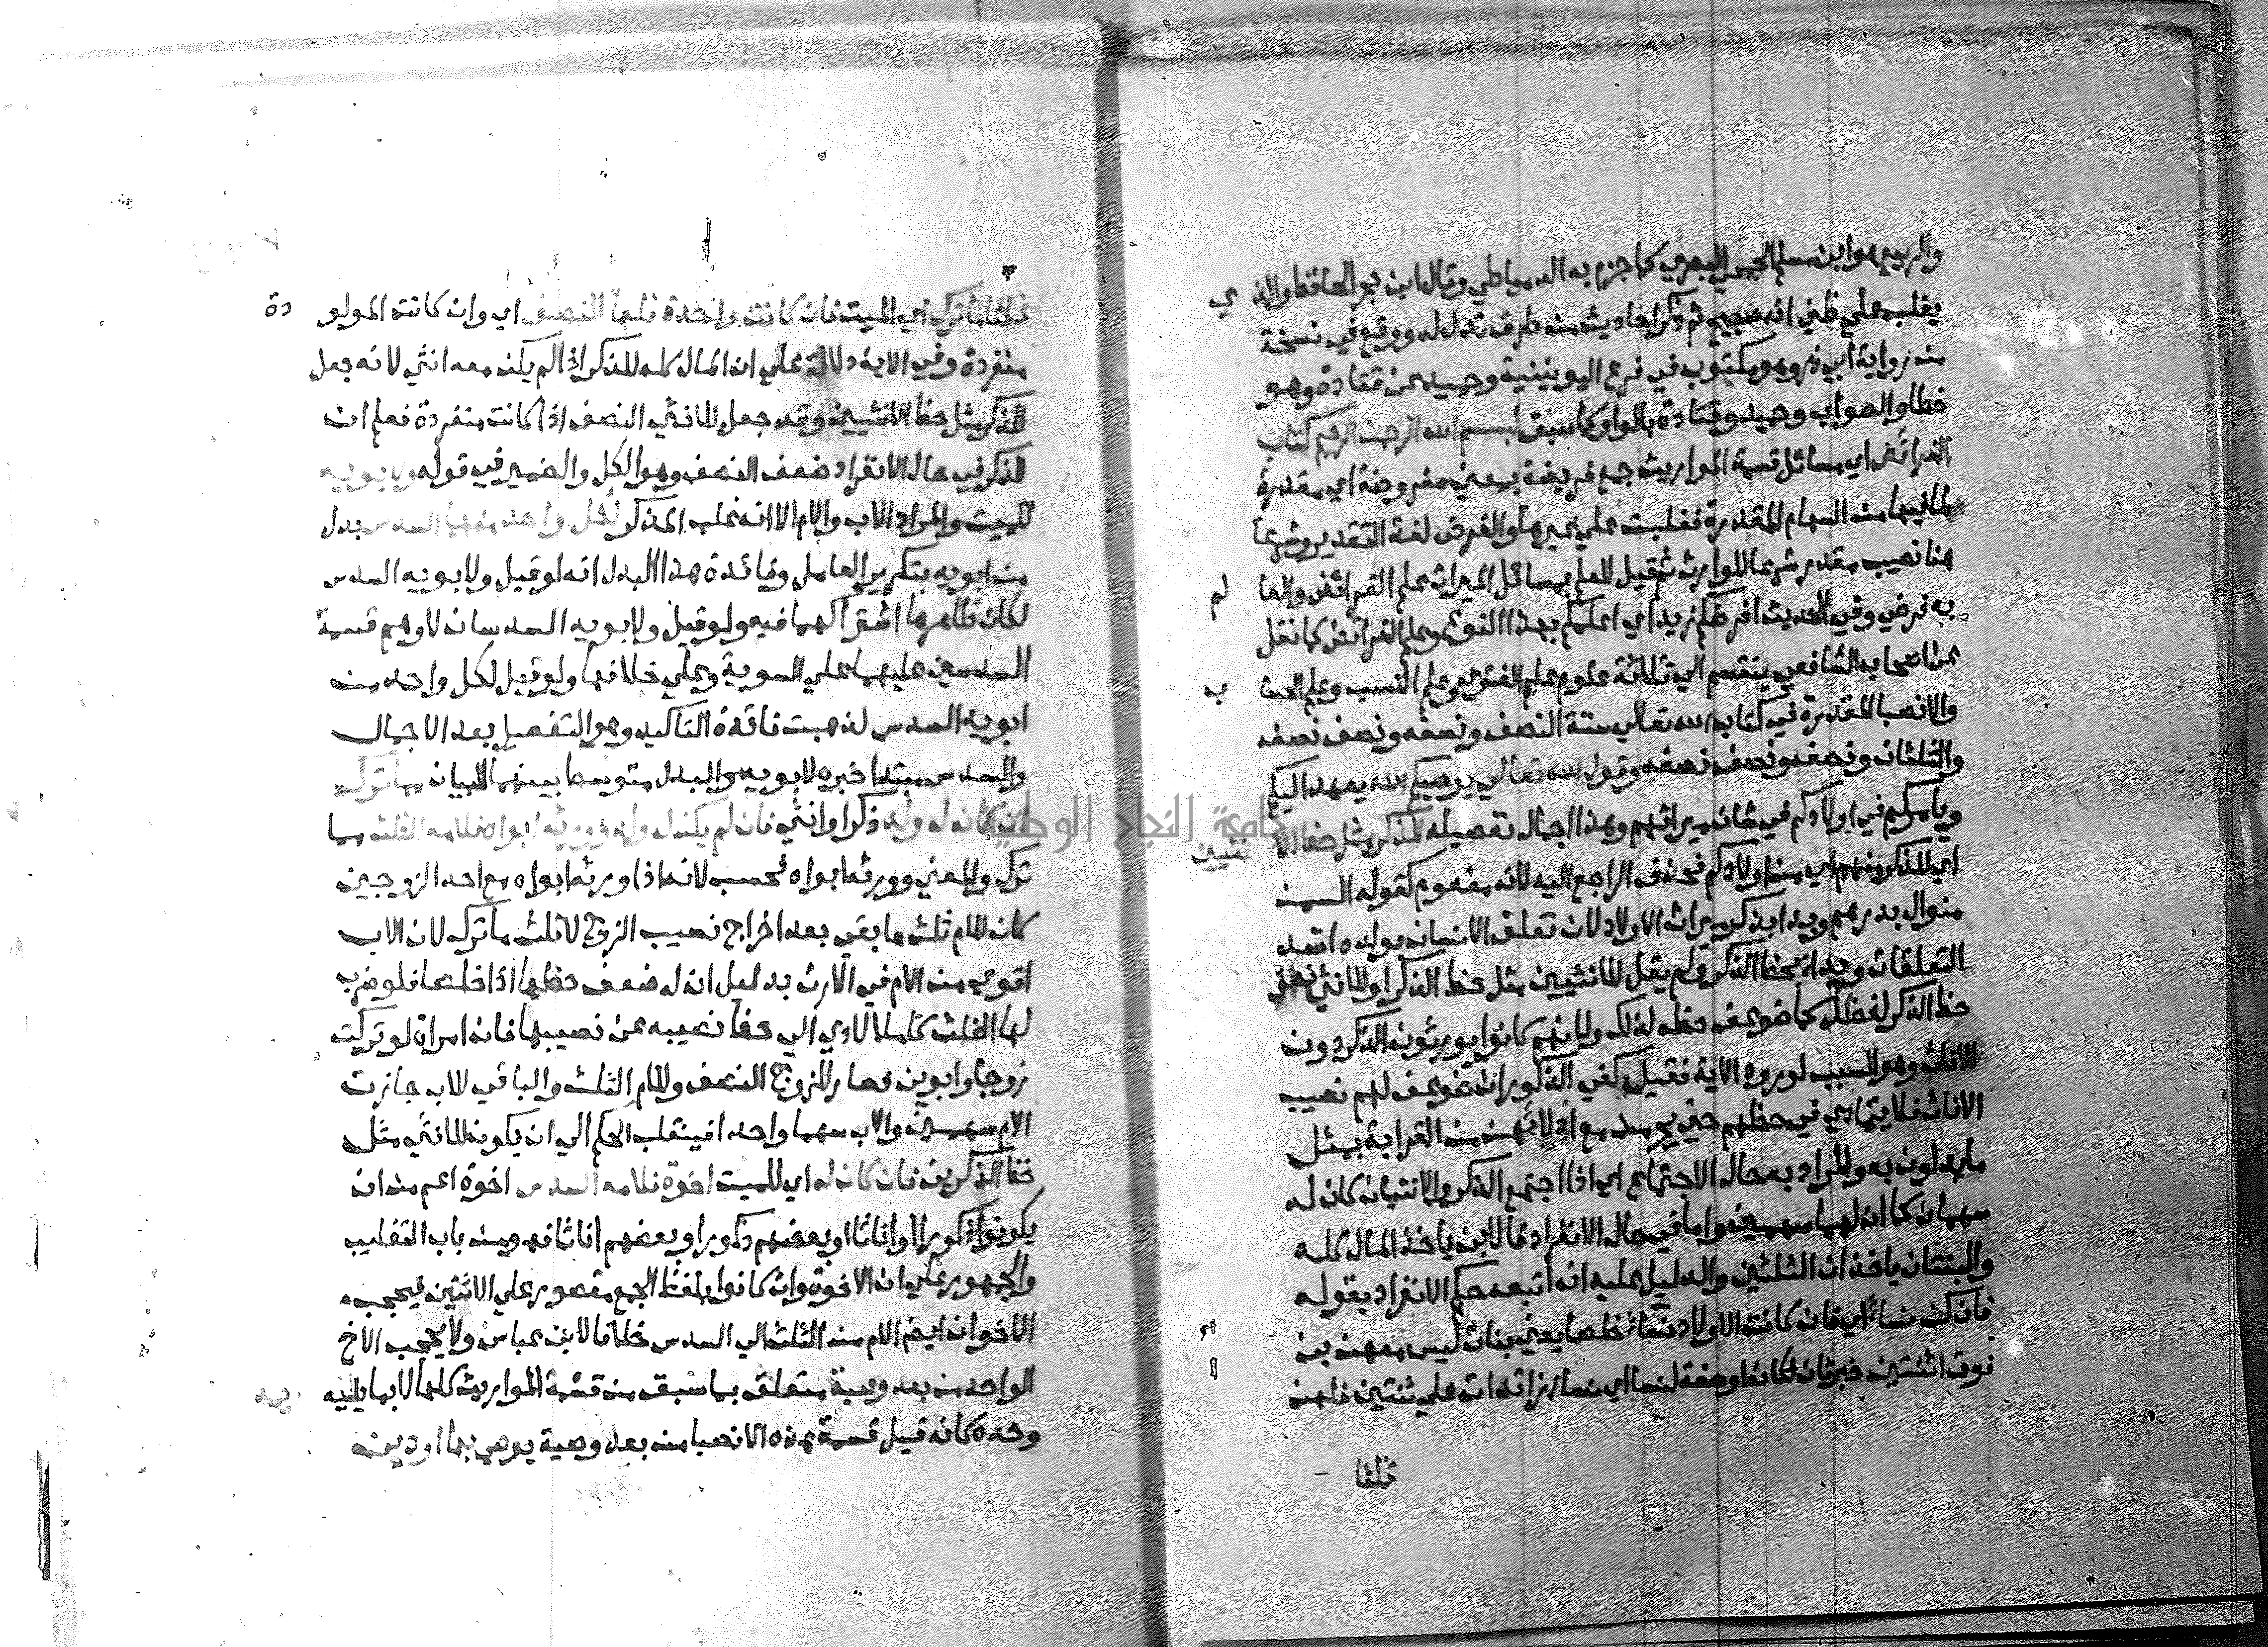 والربيع هو ابن مسلم الجمحي البصري كما جزم به الدمياطي وقال ابن حجر الحافظ والذي
يغلب علي ظني انه صبيح ثم ذكر احاديث من طرق تدل له ووقع في نسخة
من رواية ابي ذر وهو مكتوب في فرع اليونينية وحميد عن قتادة وهو
خطا والصواب وحميد وقتادة بالواو كما سبق بسم الله الرحمن الرحيم كتاب
الفرائض اي مسائل قسمة المواريث جمع فريضة بمعني مفروضة اي مقدرة
لما فيها من السهام المقدرة فغلبت علي غيرها والفرض لغة التقدير وشرعا
هنا نصيب مقدر شرعا للوارث ثم قيل للعلم بمسائل الميراث علم الفرائض والعالم
به فرضي وفي الحديث افرضكم زيد اي اعلمكم بهذا النوع وعلم الفرائض كما نقل
عن اصحاب الشافعي ينقسم الي ثلاثة علوم علم الفتوي وعلم النسب وعلم الحساب
والانصبا المقدرة في كتاب الله تعالي ستة النصف ونصفه ونصف نصفه
والثلثان ونصفه ونصف نصفه وقول الله تعالي يوصيكم الله يعهد اليكم
ويامركم في اولادكم في شان ميراثهم وهذا اجمال تفصيله للذكر مثل حظ الانثيين
اي للذكر منهم اي من اولادكم فحذف الراجع اليه لانه مفهوم كقوله السمن
منوان بدرهم وبدا بذكر ميراث الاولاد لان تعلق الانسان بولده اشد
التعلقات وبدا بحظ الذكر ولم يقل للانثيين مثل حظ الذكر او للانثي نصف
حظ الذكر لفضله كما ضوعف حظه لذلك ولانهم كانوا يورثون الذكر دون
الاناث وهو السبب لورود الاية فقيل كفي الذكور ان ضوعف لهم نصيب
الاناث فلا يتمادي في حظهم حتي يحرمن مع ادلائهن من القرابة بمثل
ما يدلون به والمراد به حال الاجتماع اي اذا اجتمع الذكر والانثيان كان له
سهمان كما ان لهما سهمين واما في حال الانفراد فالابن ياخذ المال كله
والبنتان ياخذان الثلثين والدليل عليه انه اتبعه حكم الانفراد بقوله
فان كن نساء اي فان كانت الاولاد نساء خلصا يعني بنات ليس معهن بن
فوق اثنتين خبر ثان لكان او صفة لنسا اي نسا زائدات علي ثنتين فلهن
ثلثا
ثلثا ما ترك اي الميت فان كانت واحدة فلها النصف اي وان كانت المولودة
منفردة وفي الاية دلالة علي ان المال كله للذكر اذا لم يكن معه انثي لانه جعل
للذكر مثل حظ الانثيين وقد جعل للانثي النصف اذا كانت منفردة فعلم ان
للذكر في حال الانفراد ضعف النصف وهو الكل والضمير في قوله ولابويه
للميت والمراد الاب والام الا انه غلب المذكر لكل واحد منهما السدس بدل
من ابويه بتكرير العامل وفائدة هذا البدل انه لو قيل ولابويه السدس
لكان ظاهرها اشتراكهما فيه ولو قيل ولابويه السدسان لاوهم قسمة
السدسين عليهما علي السوية وعلي خلافها ولو قيل لكل واحد من
ابويه السدس لذهبت فائدة التاكيد وهو التفصيل بعد الاجمال
والسدس مبتدا خبره لابويه والبدل متوسط بينهما للبيان مما ترك
ان كان له ولد ذكرا وانثي فان لم يكن له ولد وورثه ابواه فلامه الثلث مما
ترك والمعني وورثه ابواه فحسب لانه اذا ورثه ابواه مع احد الزوجين
كان للام ثلث ما بقي بعد اخراج نصيب الزوج لا ثلث ما ترك لان الاب
اقوي من الام في الارث بدليل ان له ضعف حظها اذا خلصا فلو ضرب
لها الثلث كاملا لادي الي حط نصيبه عن نصيبها فان امراة لو تركت
زوجا وابوين فصار للزوج النصف وللام الثلث والباقي للاب حازت
الام سهمين والاب سهما واحدا فينقلب الحكم الي ان يكون للانثي مثل
حظ الذكرين فان كان له اي للميت اخوة فلامه السدس اخوة اعم من ان
يكونوا ذكورا او اناثا او بعضهم ذكورا وبعضهم اناثا فهو من باب التغليب
والجمهور علي ان الاخوة وان كانوا بلفظ الجمع يقعون علي الاثنين فيحجب
الاخوان ايضا الام من الثلث الي السدس خلافا لابن عباس ولا يحجب الاخ
الواحد من بعد وصية متعلق بما سبق من قسمة المواريث كلها لا بما يليه
وحده كانه قيل قسمة هذه الانصبا من بعد وصية يوصي بها او دين